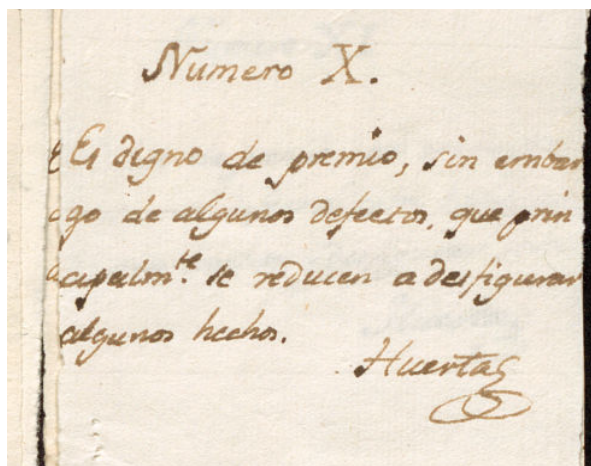 Numero X.
Es digno de premio, sin embar
go de algunos defectos, que prin
cipalm.te se reducen a desfigurar
algunos hechos.
Huerta